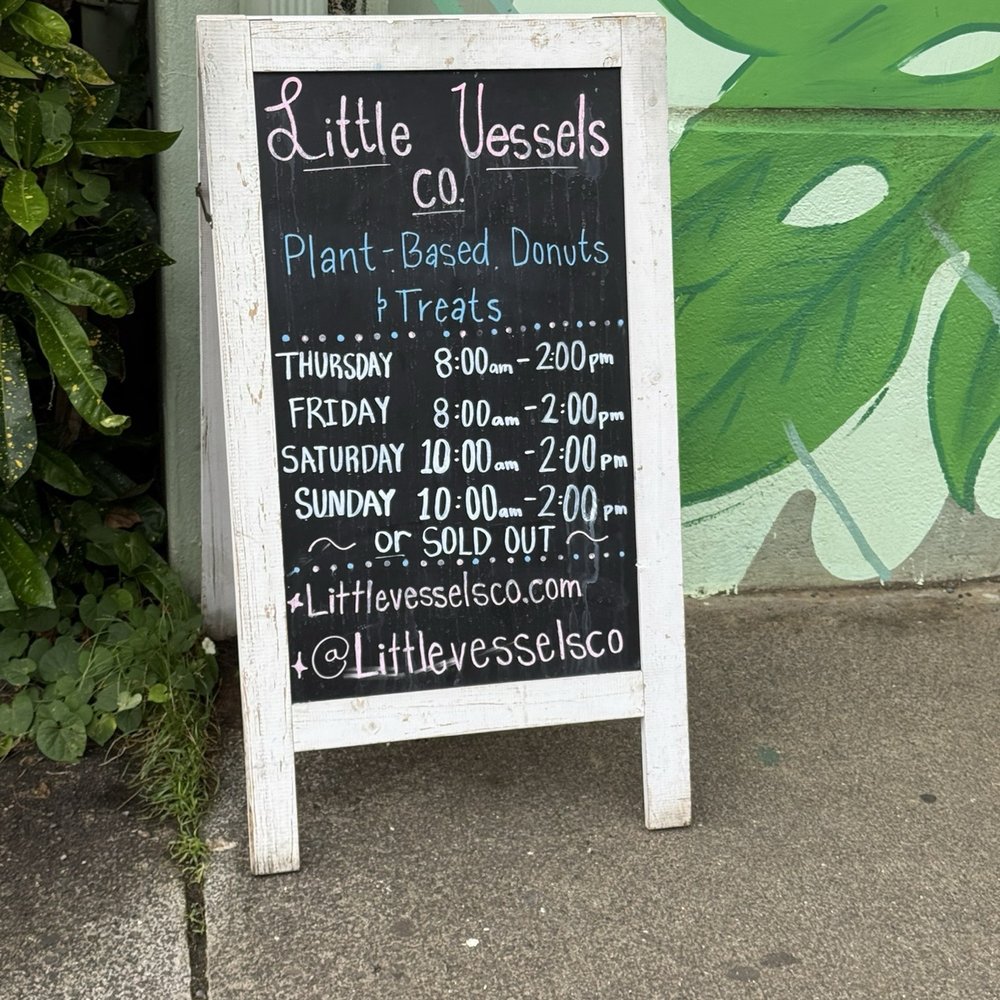 Little Vessels
CO.
Plant-Based Donuts
& Treats
THURSDAY 8:00am - 2:00pm
FRIDAY 8:00am - 2:00pm
SATURDAY 10:00am - 2:00pm
SUNDAY 10:00am - 2:00pm
~ or SOLD OUT ~
Littlevesselsco.com
@Littlevesselsco